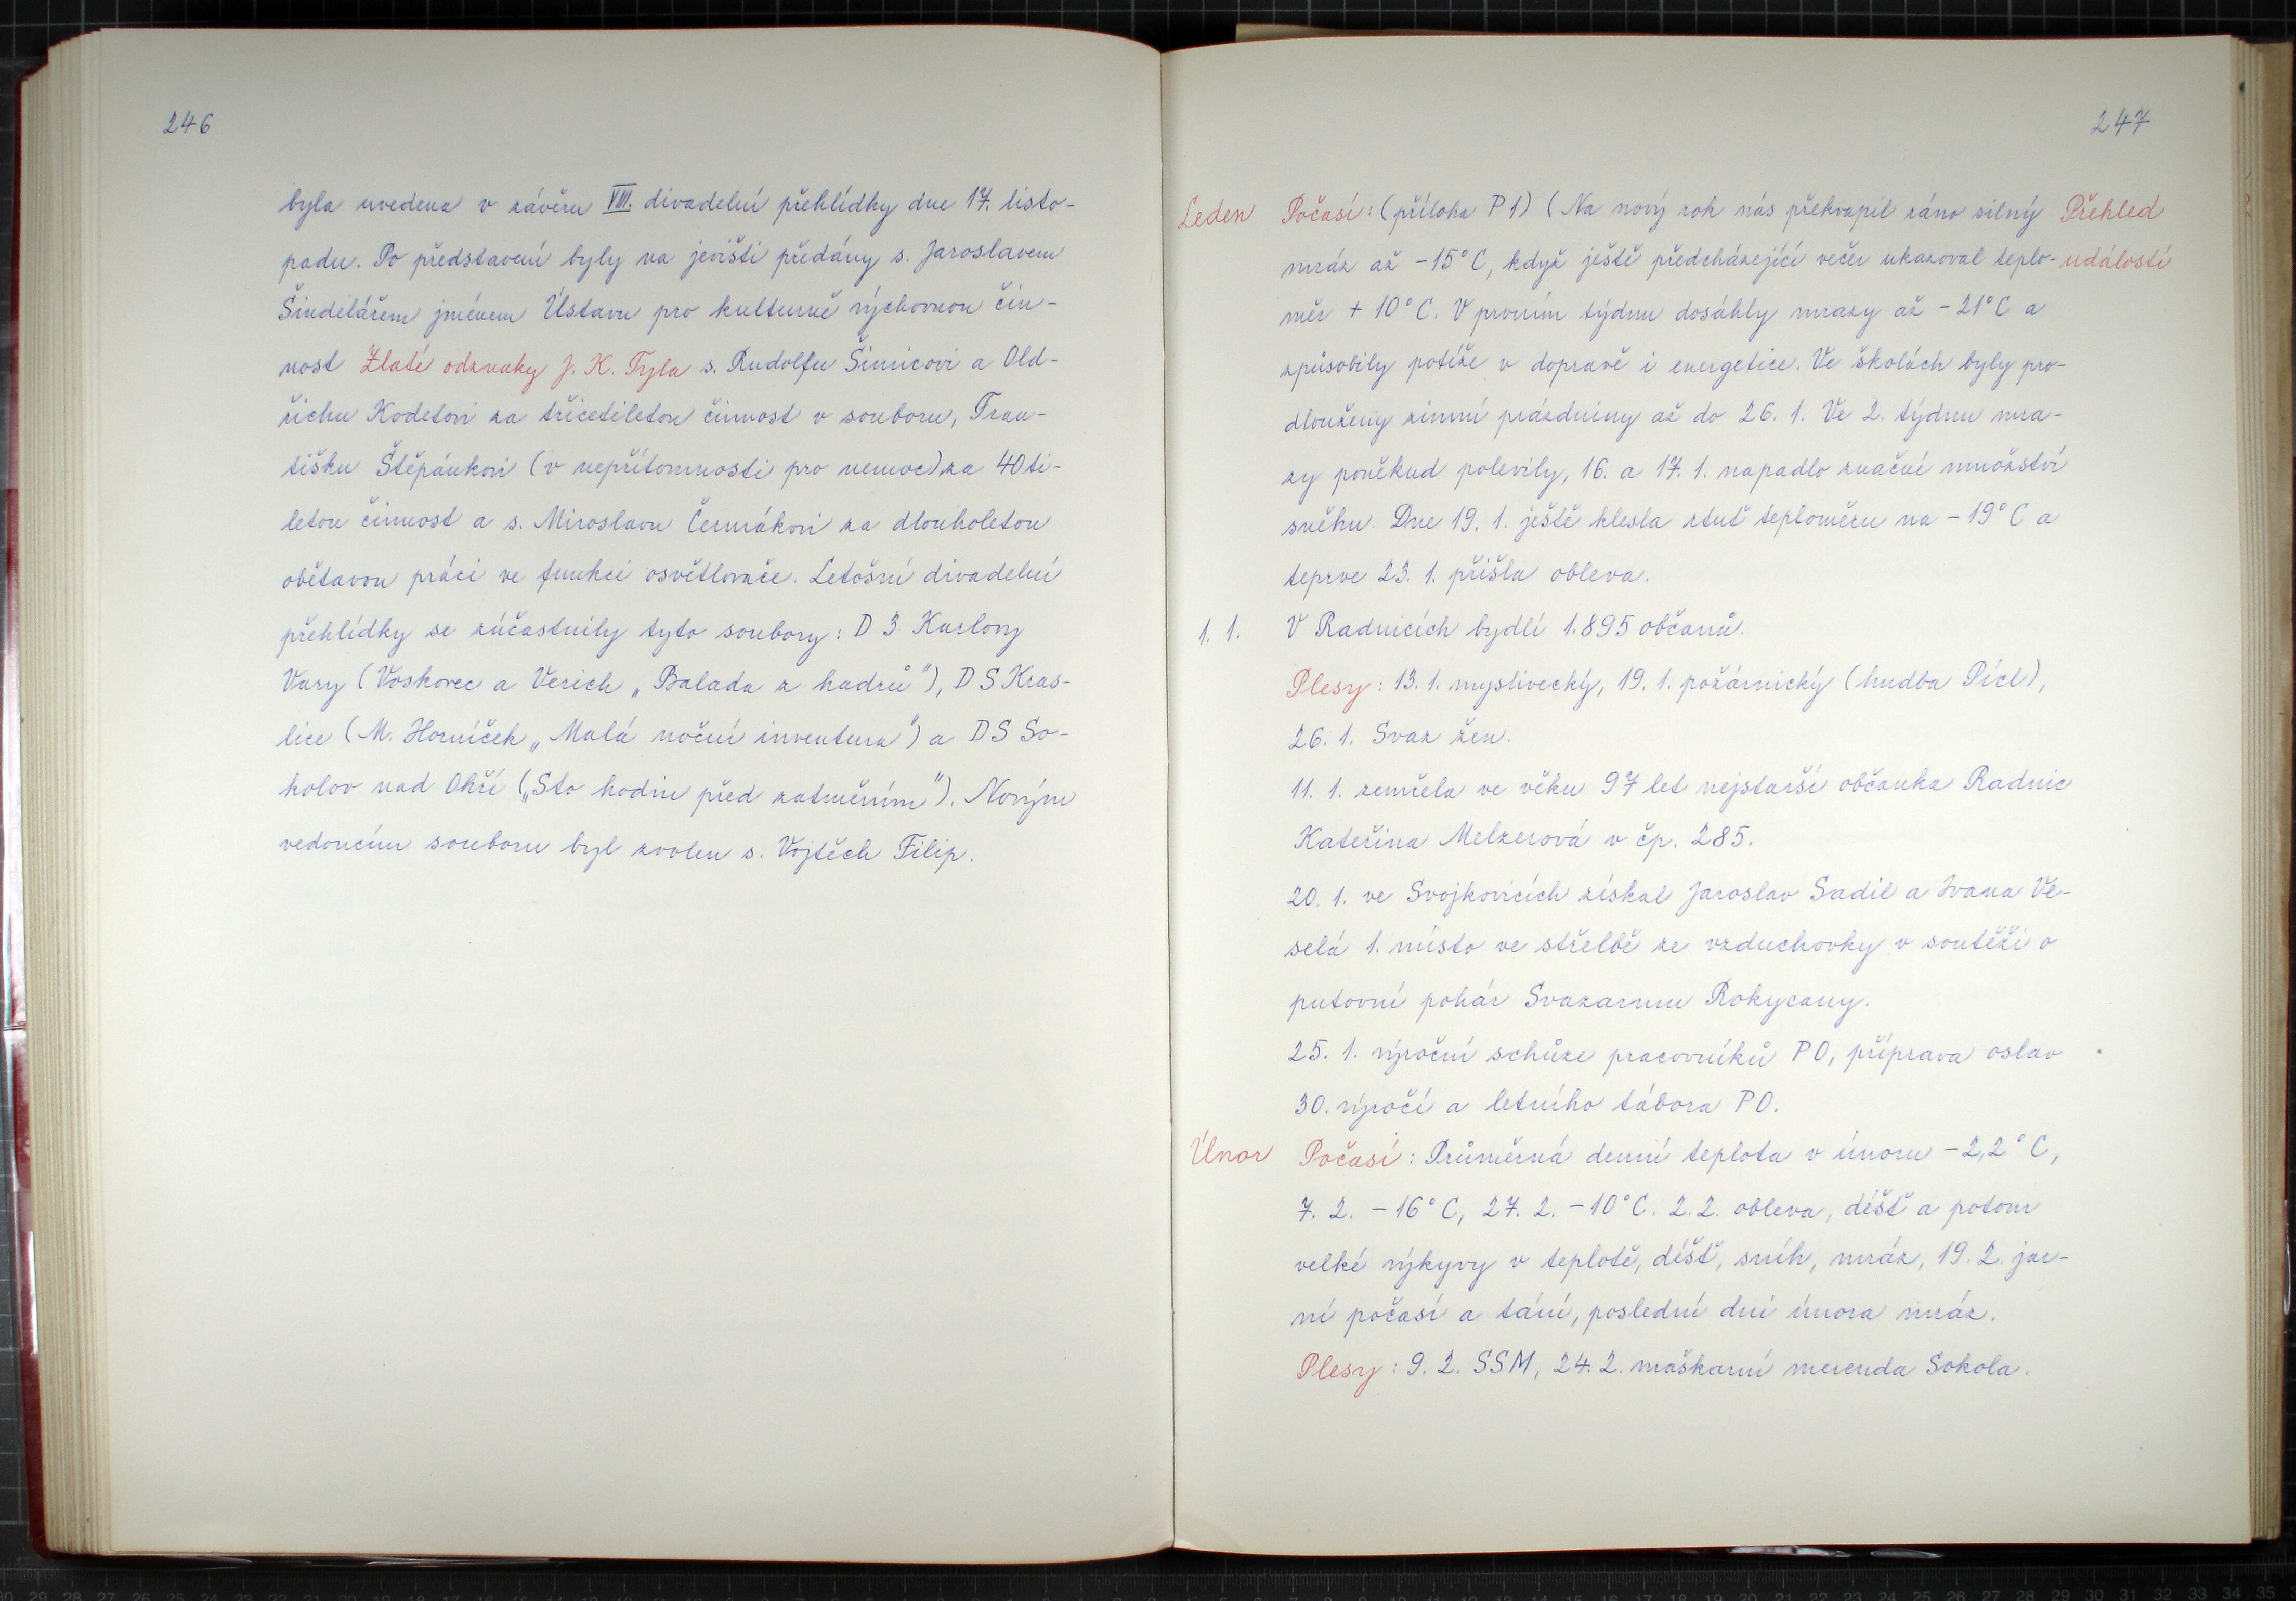 246
byla uvedena v závěru VIII. divadelní přehlídky dne 17. listo-
padu. Po představení byly na jevišti předány s. Jaroslavem
Šindelářem jménem Ústavu pro kulturně výchovnou čin-
nost Zlaté odznaky J. K. Tyla s. Rudolfu Šimicovi a Old-
řichu Kodetovi za třicetiletou činnost v souboru, Fran-
tišku Štěpánkovi (v nepřítomnosti pro nemoc) za 40ti-
letou činnost a s. Miroslavu Čermákovi za dlouholetou
obětavou práci ve funkci osvětlovače. Letošní divadelní
přehlídky se zúčastnily tyto soubory: D 3 Karlovy
Vary (Voskovec a Werich „Balada z hadrů"), DS Kras-
lice (M. Horníček „Malá noční inventura") a DS So-
kolov nad Ohří („Sto hodin před zatměním"). Novým
vedoucím souboru byl zvolen s. Vojtěch Filip.
247
Leden Počasí: (příloha P 1) (Na nový rok nás překvapil ráno silný Přehled
mráz až -15°C, když ještě předcházející večer ukazoval teplo- událostí
měr + 10°C. V prvním týdnu dosáhly mrazy až -21°C a
způsobily potíže v dopravě i energetice. Ve školách byly pro-
dlouženy zimní prázdniny až do 26. 1. Ve 2. týdnu mra-
zy poněkud polevily, 16. a 17. 1. napadlo značné množství
sněhu. Dne 19. 1. ještě klesla rtuť teploměru na -19°C a
teprve 23. 1. přišla obleva.
1. 1. V Radnicích bydlí 1.895 občanů.
Plesy: 13. 1. myslivecký, 19. 1. požárnický (hudba Pícl),
26. 1. Svaz žen.
11. 1. zemřela ve věku 97 let nejstarší občanka Radnic
Kateřina Melzerová v čp. 285.
20. 1. ve Svojkovicích získal Jaroslav Sadil a Ivana Ve-
selá 1. místo ve střelbě ze vzduchovky v soutěži o
putovní pohár Svazarmu Rokycany.
25. 1. výroční schůze pracovníků PO, příprava oslav
30. výročí a letního tábora PO.
Únor Počasí: Průměrná denní teplota v únoru -2,2°C,
7. 2. -16°C, 27. 2. -10°C. 2. 2. obleva, déšť a potom
velké výkyvy v teplotě, déšť, sníh, mráz, 19. 2. jar-
ní počasí a tání, poslední dni února mráz.
Plesy: 9. 2. SSM, 24. 2. maškarní merenda Sokola.